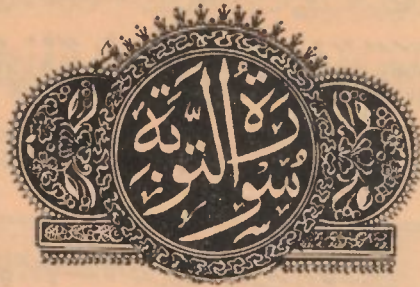 سُورَة التَّوبَة